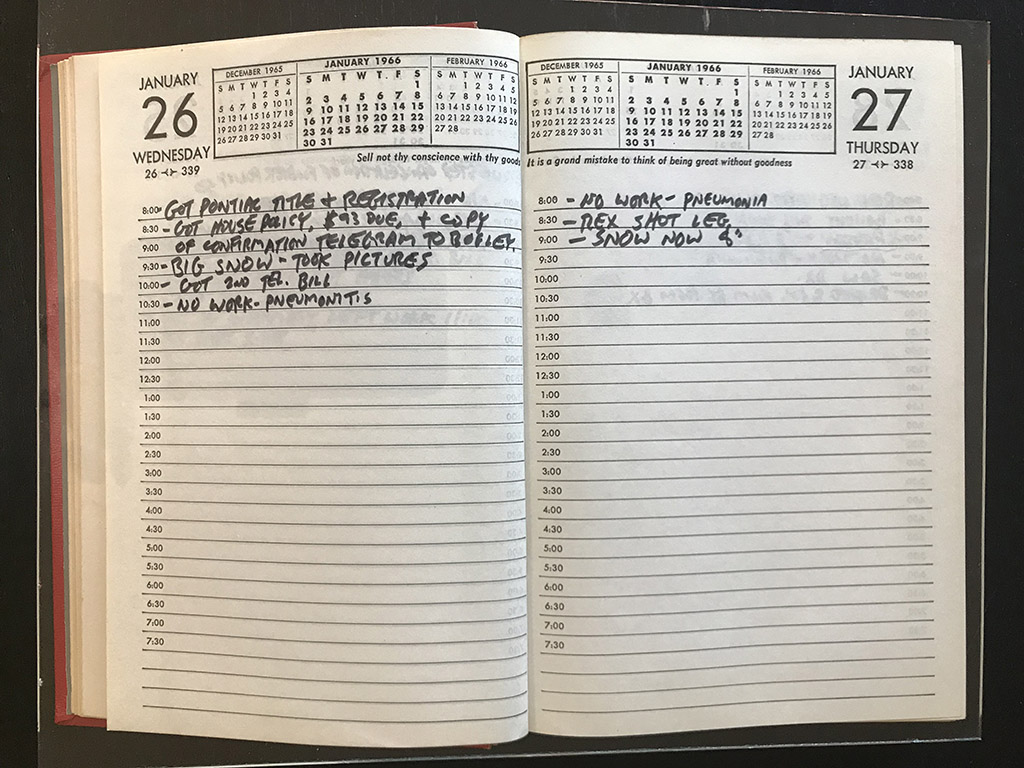 JANUARY
26
WEDNESDAY
26 ⊰⊱ 339
DECEMBER 1965
S M T W T F S
1 2 3 4
5 6 7 8 9 10 11
12 13 14 15 16 17 18
19 20 21 22 23 24 25
26 27 28 29 30 31
JANUARY 1966
S M T W T F S
1
2 3 4 5 6 7 8
9 10 11 12 13 14 15
16 17 18 19 20 21 22
23 24 25 26 27 28 29
30 31
FEBRUARY 1966
S M T W T F S
1 2 3 4 5
6 7 8 9 10 11 12
13 14 15 16 17 18 19
20 21 22 23 24 25 26
27 28
Sell not thy conscience with thy goods
8:00 - GOT PONTIAC TITLE + REGISTRATION
8:30 - GOT HOUSE POLICY, $93 DUE, + COPY
9:00 OF CONFIRMATION TELEGRAM TO
9:30 - BIG SNOW - TOOK PICTURES
10:00 - GOT 2ND TEL. BILL
10:30 - NO WORK - PNEUMONITIS
11:00
11:30
12:00
12:30
1:00
1:30
2:00
2:30
3:00
3:30
4:00
4:30
5:00
5:30
6:00
6:30
7:00
7:30
DECEMBER 1965
S M T W T F S
1 2 3 4
5 6 7 8 9 10 11
12 13 14 15 16 17 18
19 20 21 22 23 24 25
26 27 28 29 30 31
JANUARY 1966
S M T W T F S
1
2 3 4 5 6 7 8
9 10 11 12 13 14 15
16 17 18 19 20 21 22
23 24 25 26 27 28 29
30 31
FEBRUARY 1966
S M T W T F S
1 2 3 4 5
6 7 8 9 10 11 12
13 14 15 16 17 18 19
20 21 22 23 24 25 26
27 28
JANUARY
27
THURSDAY
27 ⊰⊱ 338
It is a grand mistake to think of being great without goodness
8:00 - NO WORK - PNEUMONIA
8:30 - REX SHOT LEG
9:00 - SNOW NOW 8"
9:30
10:00
10:30
11:00
11:30
12:00
12:30
1:00
1:30
2:00
2:30
3:00
3:30
4:00
4:30
5:00
5:30
6:00
6:30
7:00
7:30